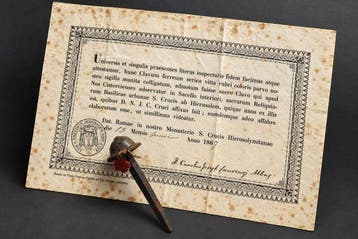 Universis et singulis praesentes literas inspecturis fidem facimus atque
attestamur, hunc Clavum ferreum serica vitta rubri coloris parvo nos-
tro sigillo munita colligatum, adnotum fuisse sacro Clavo qui apud
Nos Cisterciences adservatur in Sacello interiori, sacrarum Reliquia-
rum Basilicae urbanae S. Crucis in Hierusalem, quique unus ex illis
est, quibus D. N. J. C. Cruci affixus fuit; eumdemque adeo affabre
elaboratum esse, ut simillimus videatur.
Dat. Romae in nostro Monasterio S. Crucis Hierosolymitanae
die 13 Mensis Anno 186